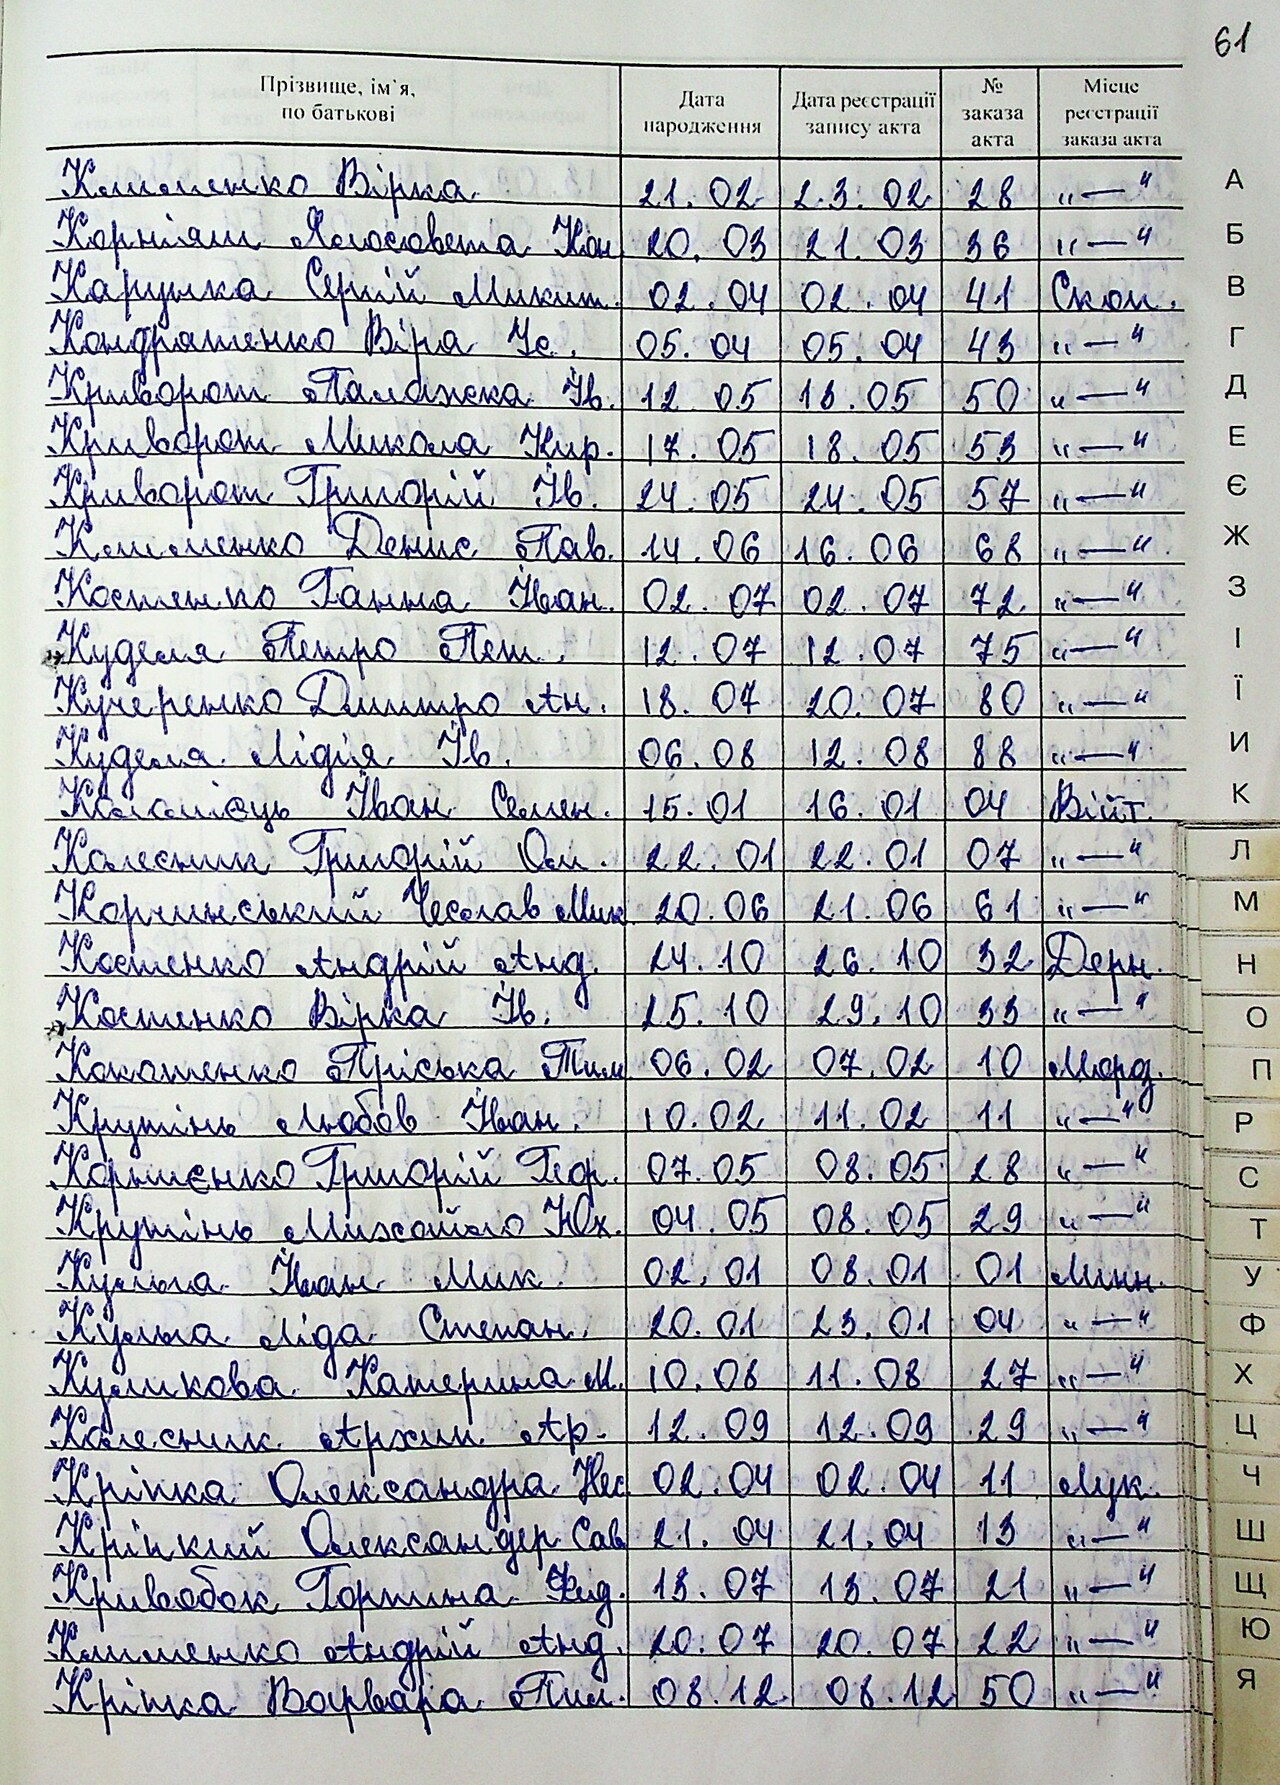 61
Прізвище, ім'я, по батькові | Дата народження | Дата реєстрації запису акта | № заказа акта | Місце реєстрації заказа акта
Клименко Вірка 21.02 23.02 28 „—"
Корніяш Ялосовета Кон. 20.03 21.03 36 „—"
Карупка Сергій Микит. 02.04 02.04 41 Скоп.
Кондратенко Віра Ус. 05.04 05.04 43 „—"
Криворот Палажка Ів. 12.05 13.05 50 „—"
Криворот Микола Кир. 17.05 18.05 53 „—"
Криворот Григорій Ів. 24.05 24.05 57 „—"
Клименко Денис Пав. 14.06 16.06 68 „—"
Костенко Ганна Іван. 02.07 02.07 72 „—"
Куделя Петро Пет. 12.07 12.07 75 „—"
Кучеренко Дмитро Ан. 18.07 20.07 80 „—"
Куделя Лідія Ів. 06.08 12.08 88 „—"
Коломієць Іван Семен. 15.01 16.01 04 Війт.
Колесник Григорій Ол. 22.01 22.01 07 „—"
Корчинський Чеслав Мик 20.06 21.06 61 „—"
Костенко Андрій Анд. 24.10 26.10 32 Дерн.
Костенко Вірка Ів. 25.10 29.10 33 „—"
Кокотенко Пріська Тим 06.02 07.02 10 Морд.
Крутінь Любов Іван. 10.02 11.02 11 „—"
Корнієнко Григорій Гор. 07.05 08.05 28 „—"
Крутінь Михайло Юх. 04.05 08.05 29 „—"
Кулига Іван Мик. 02.01 08.01 01 Минк.
Ліда Степан. 20.01 23.01 04 „—"
Куликова Катерина М. 10.08 11.08 27 „—"
Колесник Архип Ар. 12.09 12.09 29 „—"
Кріпка Олександра Нес 02.04 02.04 11 Лук.
Кріпкий Олександер Сав 21.04 21.04 13 „—"
Кривобок Горпина Фед. 13.07 13.07 21 „—"
Клименко Андрій Анд. 20.07 20.07 22 „—"
Кріпка Варвара Пил. 08.12 08.12 50 „—"
А
Б
В
Г
Д
Е
Є
Ж
З
І
Ї
И
К
Л
М
Н
О
П
Р
С
Т
У
Ф
Х
Ц
Ч
Ш
Щ
Ю
Я